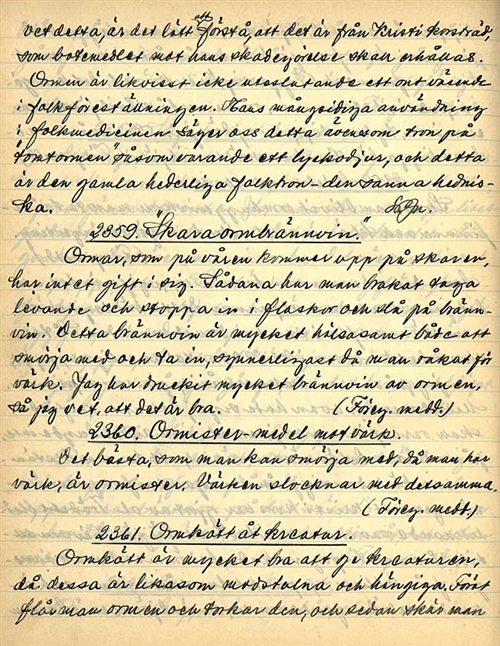 vet detta, är det lätt att förstå, att det är från Kristi korsträd,
som botemedlet mot hans skadegörelse skall erhållas.
Ormen är likvisst icke uteslutande ett ont väsende
i folkföreställningen. Hans mångsidiga användning
i folkmedicinen säger oss detta även som tron på
"tomtormen" såsom varande ett lyckodjur, och detta
är den gamla hederliga folktron - den sanna hednis-
ka.
2359. "Skaraormbrännvin."
Ormar, som på våren kommer opp på skaren,
har intet gift i sig. Sådana har man brukat taga
levande och stoppa in i flaskor och slå på bränn-
vin. Detta brännvin är mycket hälsosamt både att
smörja med och ta in, synnerligast då man råkat få
värk. Jag har druckit mycket brännvin av ormen,
så jag vet, att det är bra. (Föreg. medd.)
2360. Ormister-medel mot värk.
Det bästa, som man kan smörja med, då man har
värk, är ormister. Värken slocknar med detsamma.
(Föreg. medd.)
2361. Ormkött åt kreatur.
Ormkött är mycket bra att ge kreaturen,
då dessa är likasom modstolna och hängiga. Först
flår man ormen och torkar den, och sedan skär man